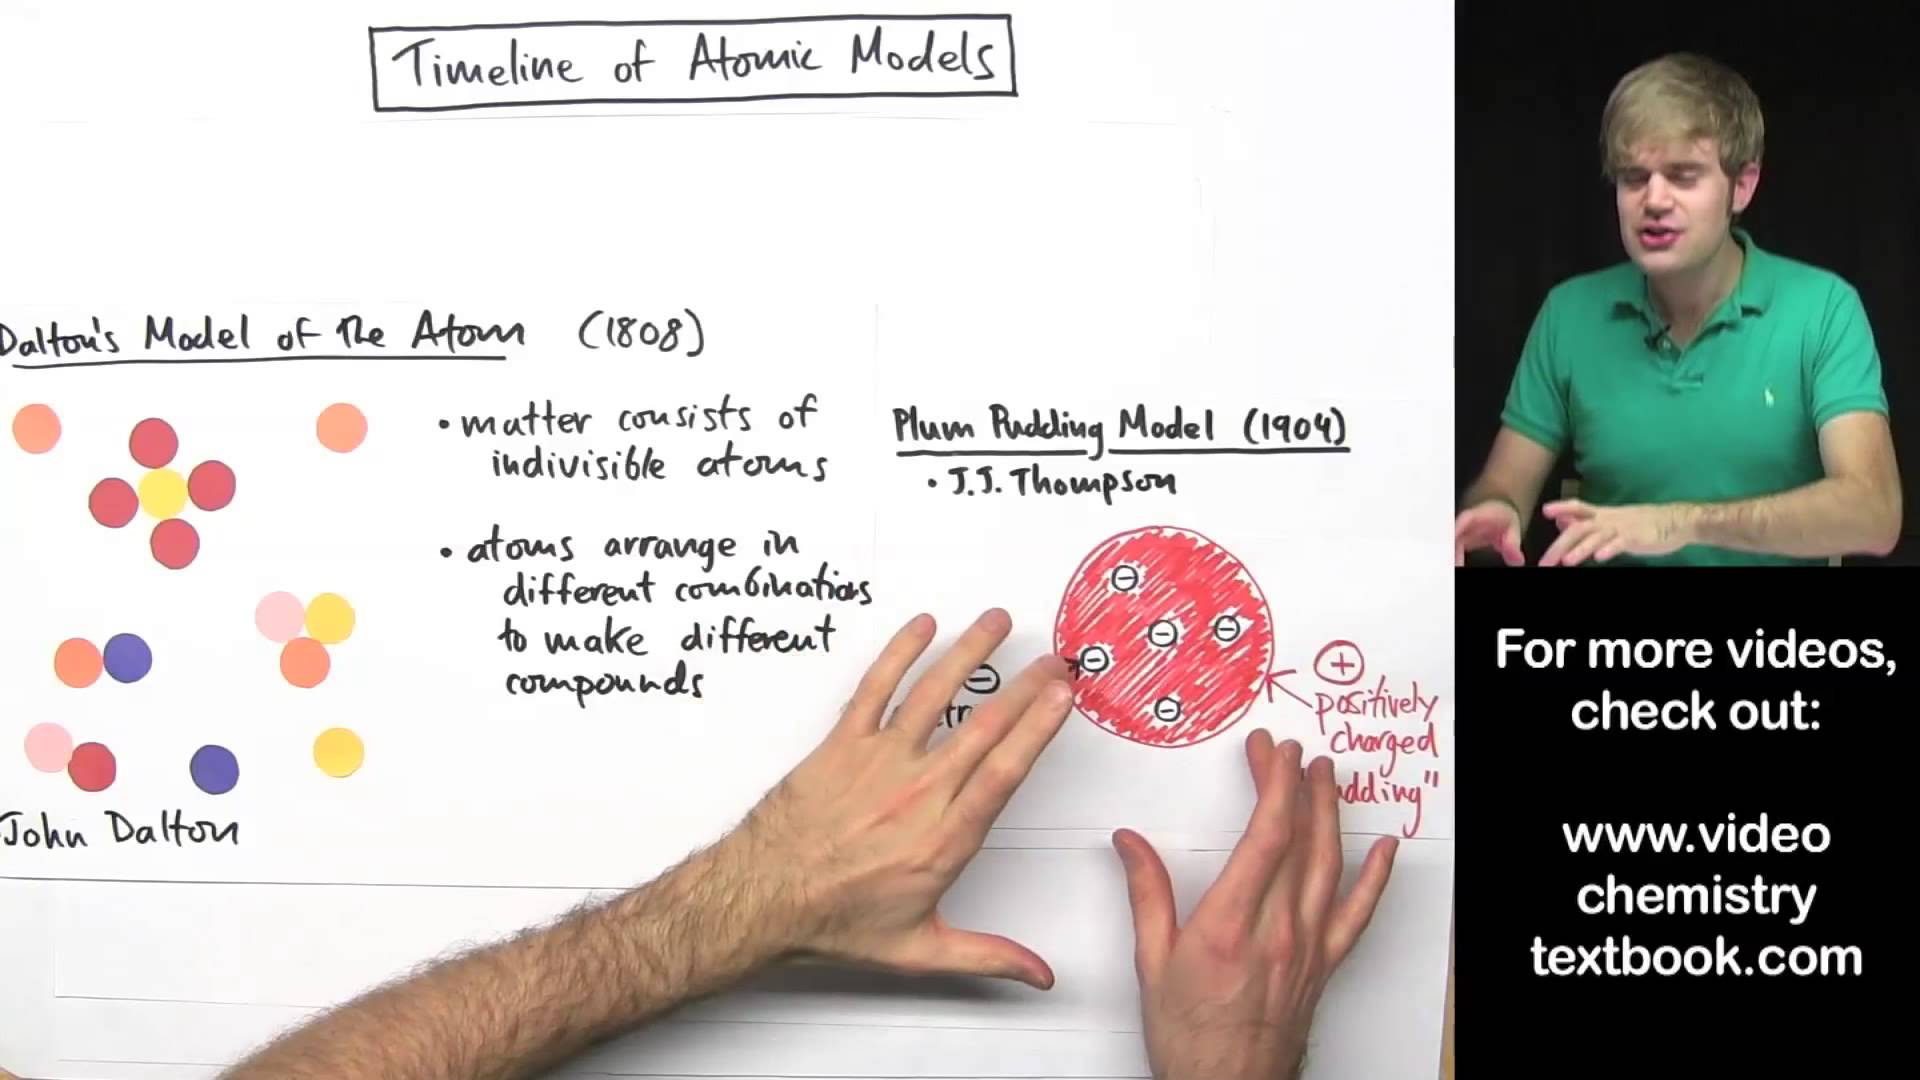 Timeline of Atomic Models
Dalton's Model of the Atom (1808)
• matter consists of
indivisible atoms
• atoms arrange in
different combinations
to make different
compounds
John Dalton
Plum Pudding Model (1904)
• J.J. Thompson
⊖
⊖
⊖
⊖
⊖
⊖
⊕
positively
charged
For more videos,
check out:
www.video
chemistry
textbook.com